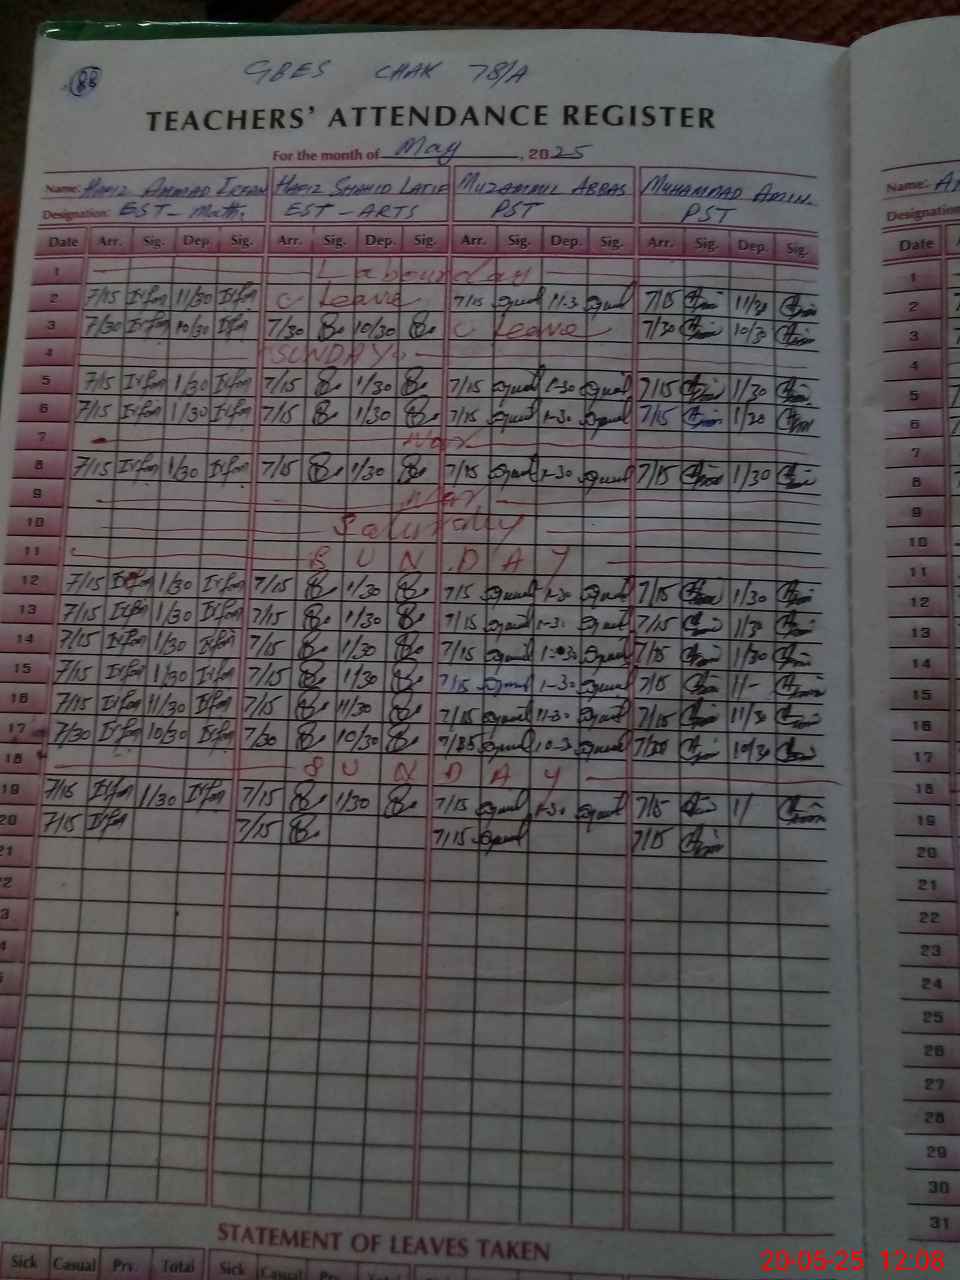 88
GBES CHAK 78/A
TEACHERS' ATTENDANCE REGISTER
For the month of May, 2025
Name: HAFIZ AHMAD IRFAN HAFIZ SHAHID LATIF MUZAMMIL ABBAS MUHAMMAD AMIN Name:
Designation: EST-Math EST-ARTS PST PST Designation
Date Arr. Sig. Dep. Sig. Arr. Sig. Dep. Sig. Arr. Sig. Dep. Sig. Arr. Sig. Dep. Sig. Date
1 Labour day 1
2 7/15 Irfan 11/30 Irfan C Leave 7/15 11-3 7/15 11/30 2
3 7/30 Irfan 10/30 Irfan 7/30 10/30 C Leave 7/30 10/30 3
4 SUNDAY 4
5 7/15 Irfan 1/30 Irfan 7/15 1/30 7/15 1-30 7/15 1/30 5
6 7/15 Irfan 1/30 Irfan 7/15 1/30 7/15 1-30 7/15 1/30 6
7 7
8 7/15 Irfan 1/30 Irfan 7/15 1/30 7/15 1-30 7/15 1/30 8
9 9
10 Saturday 10
11 SUNDAY 11
12 7/15 Irfan 1/30 Irfan 7/15 1/30 7/15 1-30 7/15 1/30 12
13 7/15 Irfan 1/30 Irfan 7/15 1/30 7/15 1-3 7/15 1/30 13
14 7/15 Irfan 1/30 Irfan 7/15 1/30 7/15 1-30 7/15 1/30 14
15 7/15 Irfan 1/30 Irfan 7/15 1/30 7/15 1-30 7/15 15
16 7/15 Irfan 11/30 Irfan 7/15 11/30 7/15 11-30 7/15 11/30 16
17 7/30 Irfan 10/30 Irfan 7/30 10/30 10-3 7/30 10/30 17
18 SUNDAY 18
19 7/15 Irfan 1/30 Irfan 7/15 1/30 7/15 1-30 7/15 1/ 19
20 7/15 Irfan 7/15 7/15 7/15 20
21 21
2 22
3 23
4 24
25
26
27
28
29
30
31
STATEMENT OF LEAVES TAKEN
Sick Casual Prv. Total Sick Casual
20-05-25 12:08